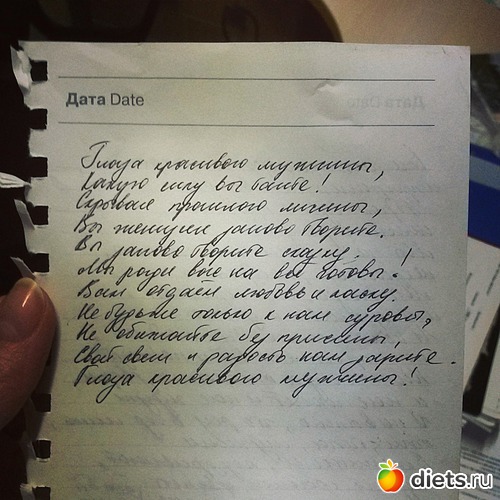 Дата Date
Глаза красивого мужчины,
Какую силу вы таите!
Скрывая прошлого личины,
Вы женщин заново творите.
Вы заново творите сказку,
Мы ради вас на всё готовы!
Вам отдаём любовь и ласку.
Не будьте только к нам суровы,
Не обижайте без причины,
Свой свет и радость нам дарите.
Глаза красивого мужчины!
diets.ru